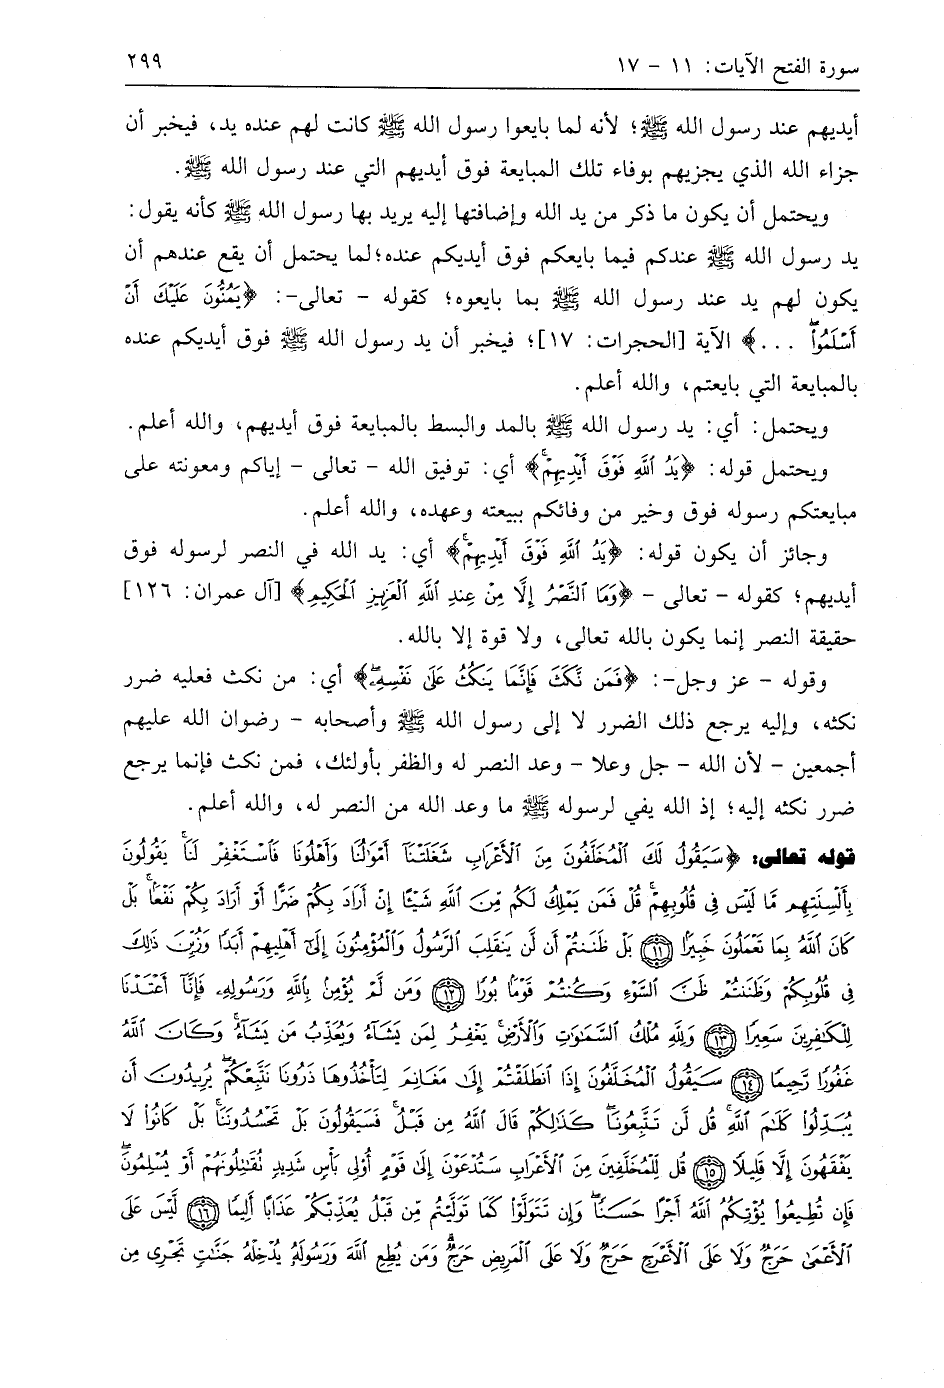 سورة الفتح الآيات: ١١ - ١٧
٢٩٩
أيديهم عند رسول الله ﷺ؛ لأنه لما بايعوا رسول الله ﷺ كانت لهم عنده يد، فيخبر أن
جزاء الله الذي يجزيهم بوفاء تلك المبايعة فوق أيديهم التي عند رسول الله ﷺ.
ويحتمل أن يكون ما ذكر من يد الله وإضافتها إليه يريد بها رسول الله ﷺ كأنه يقول:
يد رسول الله ﷺ عندكم فيما بايعكم فوق أيديكم عنده؛لما يحتمل أن يقع عندهم أن
يكون لهم يد عند رسول الله ﷺ بما بايعوه؛ كقوله - تعالى-: ﴿يَمُنُّونَ عَلَيْكَ أَنْ
أَسْلَمُواْۖ ...﴾ الآية [الحجرات: ١٧]؛ فيخبر أن يد رسول الله ﷺ فوق أيديكم عنده
بالمبايعة التي بايعتم، والله أعلم.
ويحتمل: أي: يد رسول الله ﷺ بالمد والبسط بالمبايعة فوق أيديهم، والله أعلم.
ويحتمل قوله: ﴿يَدُ ٱللَّهِ فَوْقَ أَيْدِيهِمْۚ﴾ أي: توفيق الله - تعالى - إياكم ومعونته على
مبايعتكم رسوله فوق وخير من وفائكم ببيعته وعهده، والله أعلم.
وجائز أن يكون قوله: ﴿يَدُ ٱللَّهِ فَوْقَ أَيْدِيهِمْۚ﴾ أي: يد الله في النصر لرسوله فوق
أيديهم؛ كقوله - تعالى - ﴿وَمَا ٱلنَّصْرُ إِلَّا مِنْ عِندِ ٱللَّهِ ٱلْعَزِيزِ ٱلْحَكِيمِ﴾ [آل عمران: ١٢٦]
حقيقة النصر إنما يكون بالله تعالى، ولا قوة إلا بالله.
وقوله - عز وجل-: ﴿فَمَن نَّكَثَ فَإِنَّمَا يَنكُثُ عَلَىٰ نَفْسِهِۦۖ﴾ أي: من نكث فعليه ضرر
نكثه، وإليه يرجع ذلك الضرر لا إلى رسول الله ﷺ وأصحابه - رضوان الله عليهم
أجمعين - لأن الله - جل وعلا - وعد النصر له والظفر بأولئك، فمن نكث فإنما يرجع
ضرر نكثه إليه؛ إذ الله يفي لرسوله ﷺ ما وعد الله من النصر له، والله أعلم.
قوله تعالى: ﴿سَيَقُولُ لَكَ ٱلْمُخَلَّفُونَ مِنَ ٱلْأَعْرَابِ شَغَلَتْنَآ أَمْوَٰلُنَا وَأَهْلُونَا فَٱسْتَغْفِرْ لَنَاۚ يَقُولُونَ
بِأَلْسِنَتِهِم مَّا لَيْسَ فِى قُلُوبِهِمْۚ قُلْ فَمَن يَمْلِكُ لَكُم مِّنَ ٱللَّهِ شَيْـًٔا إِنْ أَرَادَ بِكُمْ ضَرًّا أَوْ أَرَادَ بِكُمْ نَفْعًۢاۚ بَلْ
كَانَ ٱللَّهُ بِمَا تَعْمَلُونَ خَبِيرًۢا ﴿١١﴾ بَلْ ظَنَنتُمْ أَن لَّن يَنقَلِبَ ٱلرَّسُولُ وَٱلْمُؤْمِنُونَ إِلَىٰٓ أَهْلِيهِمْ أَبَدًا وَزُيِّنَ ذَٰلِكَ
فِى قُلُوبِكُمْ وَظَنَنتُمْ ظَنَّ ٱلسَّوْءِ وَكُنتُمْ قَوْمًۢا بُورًا ﴿١٢﴾ وَمَن لَّمْ يُؤْمِنۢ بِٱللَّهِ وَرَسُولِهِۦ فَإِنَّآ أَعْتَدْنَا
لِلْكَٰفِرِينَ سَعِيرًا ﴿١٣﴾ وَلِلَّهِ مُلْكُ ٱلسَّمَٰوَٰتِ وَٱلْأَرْضِۚ يَغْفِرُ لِمَن يَشَآءُ وَيُعَذِّبُ مَن يَشَآءُۚ وَكَانَ ٱللَّهُ
غَفُورًا رَّحِيمًا ﴿١٤﴾ سَيَقُولُ ٱلْمُخَلَّفُونَ إِذَا ٱنطَلَقْتُمْ إِلَىٰ مَغَانِمَ لِتَأْخُذُوهَا ذَرُونَا نَتَّبِعْكُمْۖ يُرِيدُونَ أَن
يُبَدِّلُواْ كَلَٰمَ ٱللَّهِۚ قُل لَّن تَتَّبِعُونَاۖ كَذَٰلِكُمْ قَالَ ٱللَّهُ مِن قَبْلُۖ فَسَيَقُولُونَ بَلْ تَحْسُدُونَنَاۚ بَلْ كَانُواْ لَا
يَفْقَهُونَ إِلَّا قَلِيلًا ﴿١٥﴾ قُل لِّلْمُخَلَّفِينَ مِنَ ٱلْأَعْرَابِ سَتُدْعَوْنَ إِلَىٰ قَوْمٍ أُوْلِى بَأْسٍ شَدِيدٍ تُقَٰتِلُونَهُمْ أَوْ يُسْلِمُونَۖ
فَإِن تُطِيعُواْ يُؤْتِكُمُ ٱللَّهُ أَجْرًا حَسَنًاۖ وَإِن تَتَوَلَّوْاْ كَمَا تَوَلَّيْتُم مِّن قَبْلُ يُعَذِّبْكُمْ عَذَابًا أَلِيمًا ﴿١٦﴾ لَّيْسَ عَلَى
ٱلْأَعْمَىٰ حَرَجٌ وَلَا عَلَى ٱلْأَعْرَجِ حَرَجٌ وَلَا عَلَى ٱلْمَرِيضِ حَرَجٌۗ وَمَن يُطِعِ ٱللَّهَ وَرَسُولَهُۥ يُدْخِلْهُ جَنَّٰتٍ تَجْرِى مِن